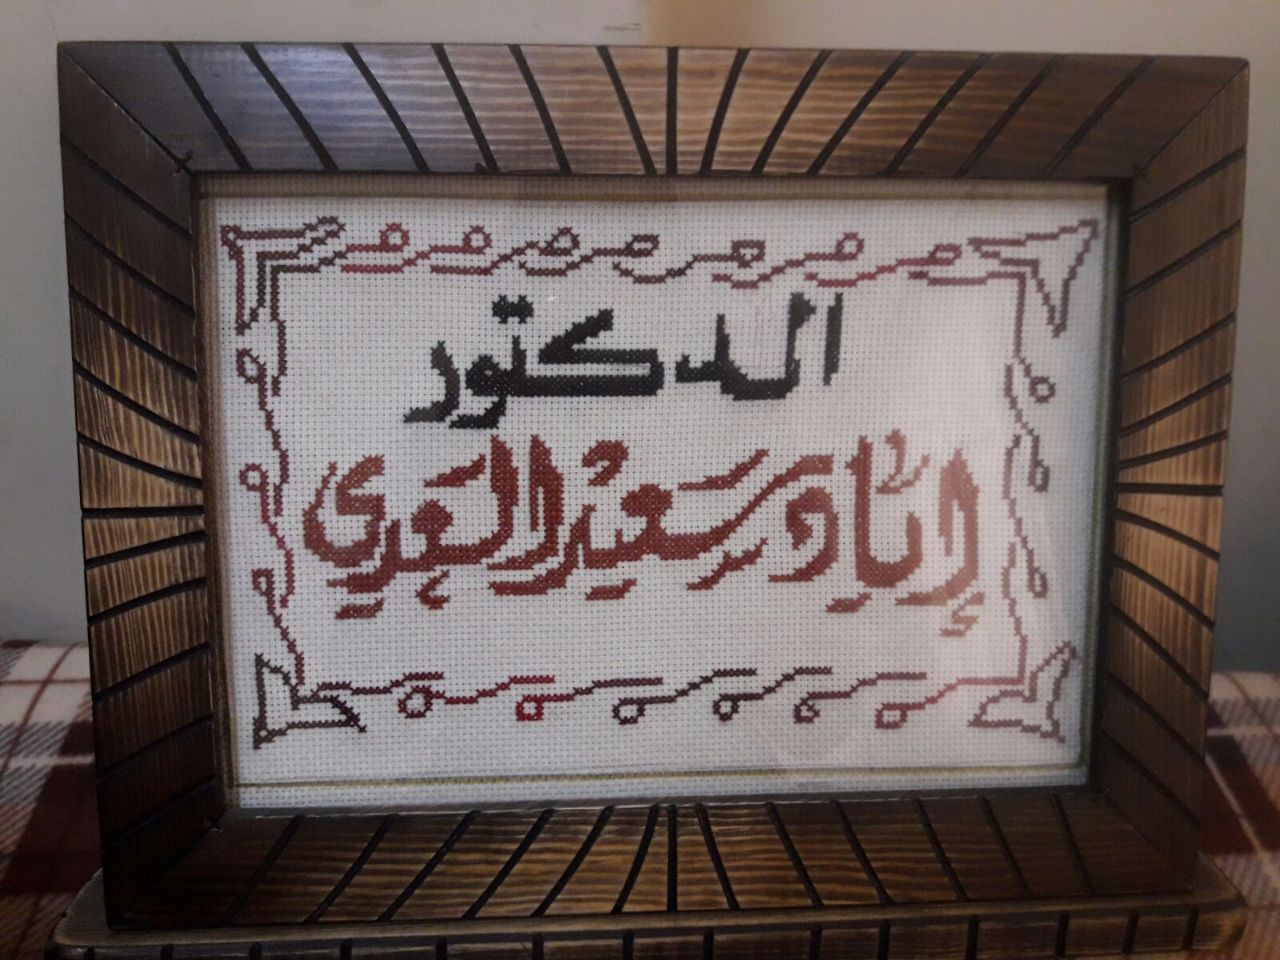 الدكتور
إياد سعيد العبدي